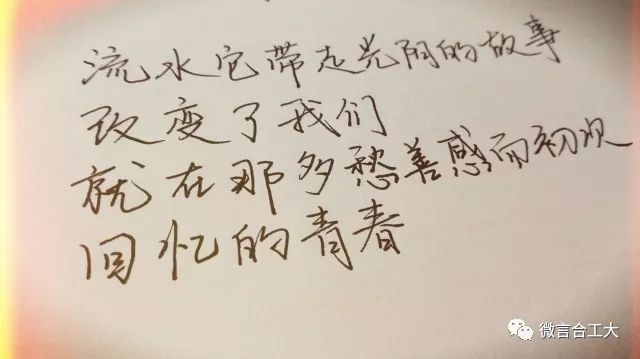 流水它带走光阴的故事
改变了我们
就在那多愁善感而初次
回忆的青春
微言合工大